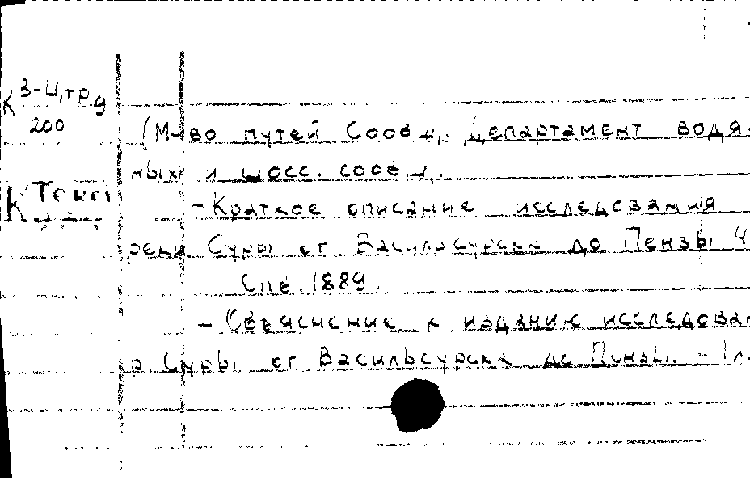 К 3-4, тр. д
200
(М-во путей Сооб щ, Департамент водя-
ных и шосс. сооб щ.
К Текст
- Краткое описание исследования
реки Суры от Васильсурска до Пензы Ч
Спб. 1889.
- Объяснение к изданию исследова
р. Суры от Васильсурска до Пензы. - 1 л.